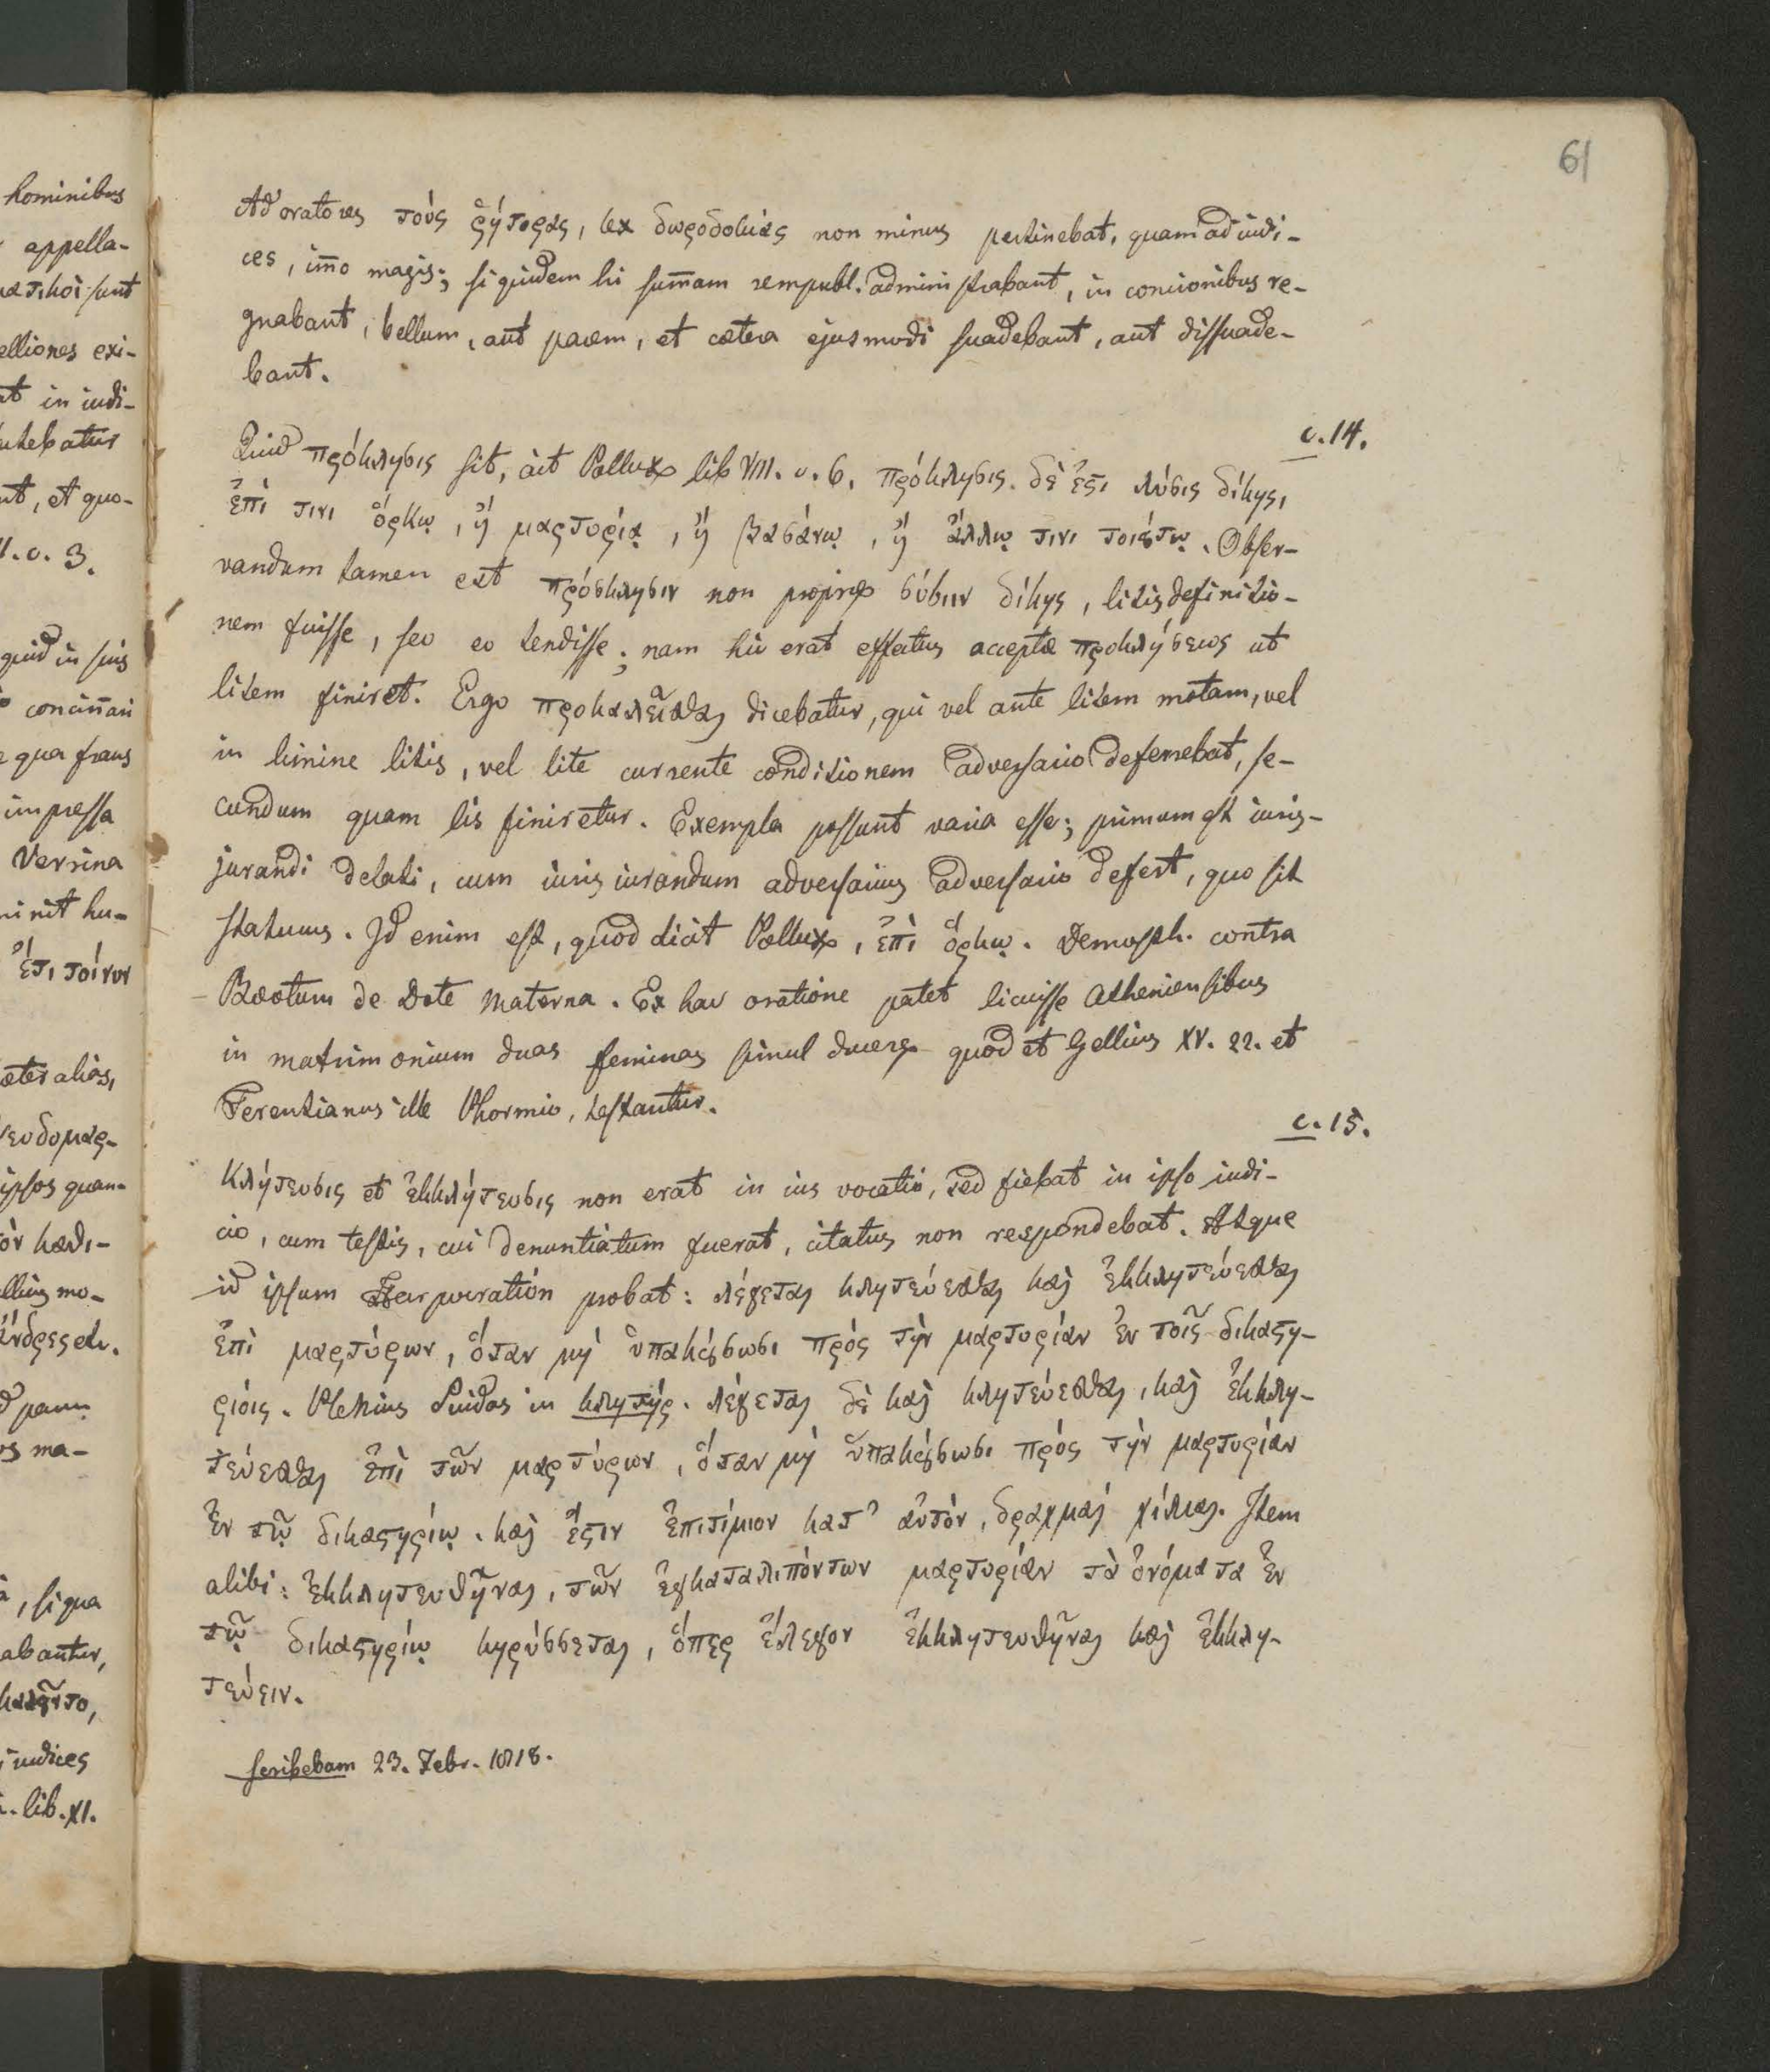 61
Ad oratores τοὺς ῥήτορας, lex δωροδοκίας non minus pertinebat, quam ad iudi-
ces, im̄o magis; siquidem hi sum̄am rempubl. administrabant, in concionibus re-
gnabant, bellum, aut pacem, et cætera ejusmodi suadebant, aut dissuade-
bant.
c. 14.
Quid πρόκλησις sit, ait Pollux lib VIII. c. 6. πρόκλησις δὲ ἔϛι λύσις δίκης,
ἐπί τινι ὅρκῳ, ἢ μαρτυρίᾳ, ἢ βασάνῳ, ἢ ἄλλῳ τινι τοιȣ́τῳ. Obser-
vandum tamen est πρόσκλησιν non proprie λύσιν δίκης, litis definitio-
nem fuisse, seu eo tendisse; nam hic erat effectus acceptæ προκλήσεως ut
litem finiret. Ergo προκαλεῖσθαι dicebatur, qui vel ante litem motam, vel
in limine litis, vel lite currente conditionem adversario deferrebat, se-
cundum quam lis finiretur. Exempla possunt varia esse; primum est iuris-
jurandi delati, cum iuris iurandum adversarius adversario defert, quo sit
staturus. Id enim est, quod dicit Pollux, ἐπὶ ὅρκῳ. Demosth. contra
Bœotum de Dote Materna. Ex hac oratione patet licuisse Atheniensibus
in matrimonium duas feminas simul ducere quod et Gellius XV. 22. et
Terentianus ille Phormio, testantur.
c. 15.
Κλήτευσις et ἐκκλήτευσις non erat in ius vocatio, sed fiebat in ipso iudi-
cio, cum testis, cui denuntiatum fuerat, citatus non respondebat. Atque
id ipsum Harpocration probat: λέγεται κλητεύεσθαι καὶ ἐκκλητεύεσθαι
ἐπὶ μαρτύρων, ὅταν μὴ ὑπακȣ́σωσι πρὸς τὴν μαρτυρίαν ἐν τοῖς δικαϛη-
ρίοις. Plenius Suidas in κλητήρ. λέγεται δὲ καὶ κλητεύεσθαι, καὶ ἐκκλη-
τεύεσθαι ἐπὶ τῶν μαρτύρων, ὅταν μὴ ὑπακȣ́σωσι πρὸς τὴν μαρτυρίαν
ἐν τῷ δικαϛηρίῳ. καὶ ἔϛιν ἐπιτίμιον κατ᾽ αὐτόν, δραχμαὶ χίλιαι. Item
alibi: ἐκκλητευθῆναι, τῶν ἐγκαταλιπόντων μαρτυρίαν τὰ ὀνόματα ἐν
τῷ δικαϛηρίῳ κηρύσσεται, ὅπερ ἔλεγον ἐκκλητευθῆναι καὶ ἐκκλη-
τεύειν.
scribebam 23. Febr. 1818.
hominibus
appella-
sunt
elliones exi-
in iudi-
et quo-
c. 3.
quid in suis
concin̄ari
qua fraus
impressa
Versina
hu-
ἔτι τοίνυν
alias,
ipsos quan-
mo-
ma-
, si qua
iudices
lib. XI.